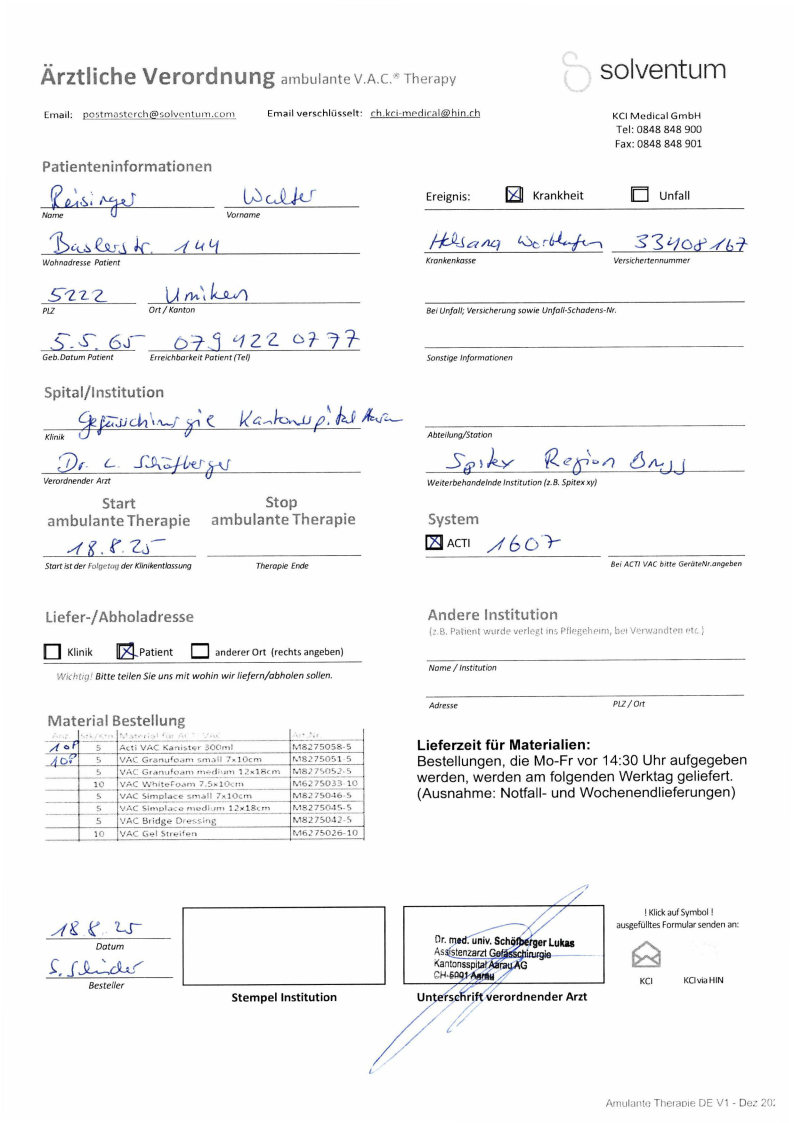 Ärztliche Verordnung ambulante V.A.C.® Therapy
solventum
Email: postmasterch@solventum.com Email verschlüsselt: ch.kci-medical@hin.ch
KCI Medical GmbH
Tel: 0848 848 900
Fax: 0848 848 901
Patienteninformationen
Reisinger Walter
Name Vorname
Ereignis: Krankheit Unfall
Baslerstr. 144
Wohnadresse Patient
Helsana Worblaufen 33408167
Krankenkasse Versichertennummer
5222 Umiken
PLZ Ort / Kanton
Bei Unfall; Versicherung sowie Unfall-Schadens-Nr.
5.5.65 079 422 07 77
Geb.Datum Patient Erreichbarkeit Patient (Tel)
Sonstige Informationen
Spital/Institution
Gefässchirurgie Kantonsspital Aarau
Klinik
Abteilung/Station
Dr. L. Schöfberger
Verordnender Arzt
Spitex Region Brugg
Weiterbehandelnde Institution (z.B. Spitex xy)
Start ambulante Therapie
Stop ambulante Therapie
18.8.25
Start ist der Folgetag der Klinikentlassung Therapie Ende
System
ACTI 1607
Bei ACTI VAC bitte GeräteNr.angeben
Liefer-/Abholadresse
Klinik Patient anderer Ort (rechts angeben)
Wichtig! Bitte teilen Sie uns mit wohin wir liefern/abholen sollen.
Andere Institution
(z.B. Patient wurde verlegt ins Pflegeheim, bei Verwandten etc.)
Name / Institution
Adresse PLZ / Ort
Material Bestellung
Anz. Stk/Ktn Material für ACTI VAC Art.Nr.
10P 5 Acti VAC Kanister 300ml M8275058-5
10P 5 VAC Granufoam small 7x10cm M8275051-5
5 VAC Granufoam medium 12x18cm M8275052-5
10 VAC WhiteFoam 7.5x10cm M6275033-10
5 VAC Simplace small 7x10cm M8275046-5
5 VAC Simplace medium 12x18cm M8275045-5
5 VAC Bridge Dressing M8275042-5
10 VAC Gel Streifen M6275026-10
Lieferzeit für Materialien:
Bestellungen, die Mo-Fr vor 14:30 Uhr aufgegeben
werden, werden am folgenden Werktag geliefert.
(Ausnahme: Notfall- und Wochenendlieferungen)
18.8.25
Datum
Besteller
Stempel Institution
Dr. med. univ. Schöfberger Lukas
Assistenzarzt Gefässchirurgie
Kantonsspital Aarau AG
CH-5001 Aarau
Unterschrift verordnender Arzt
! Klick auf Symbol !
ausgefülltes Formular senden an:
KCI KCI via HIN
Amulante Therapie DE V1 - Dez 202